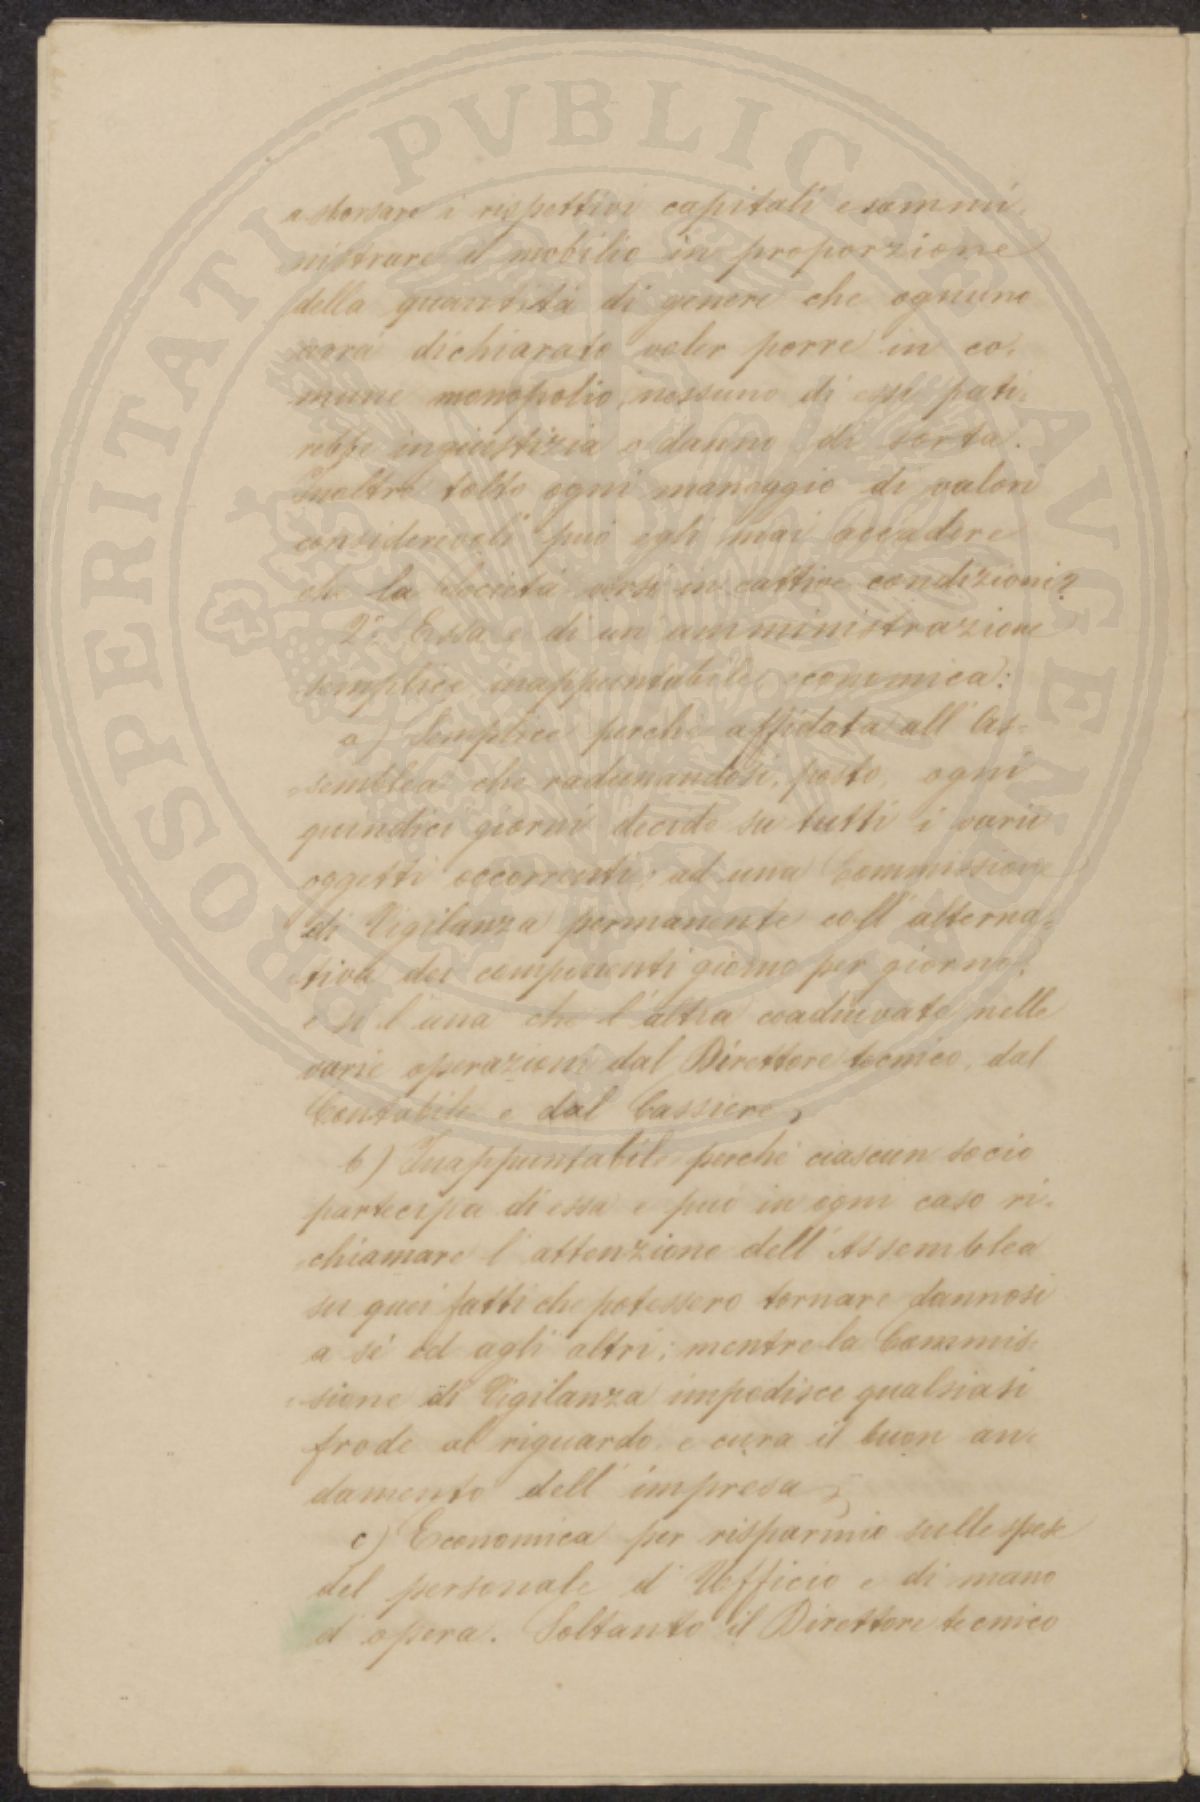 a sborsare i rispettivi capitali e sommi-
nistrare il mobilio in proporzione
della quantità di genere che ognuno
avrà dichiarato voler porre in co-
mune monopolio, nessuno di essi pati-
rebbe ingiustizia o danno di sorta.
Inoltre tolto ogni maneggio di valori
considerevoli può egli mai accadere
che la Società versi in cattive condizioni?
2° Essa è di un'amministrazione
semplice, inappuntabile, economica:
a) Semplice perché affidata all'As-
semblea che radunandosi, posto, ogni
quindici giorni decide su tutti i varii
oggetti occorrenti; ad una Commissione
di Vigilanza permanente coll'alterna-
tiva dei componenti giorno per giorno,
e sì l'una che l'altra coadiuvate nelle
varie operazioni dal Direttore tecnico, dal
Contabile e dal Cassiere;
b) Inappuntabile perché ciascun socio
partecipa di essa e può in ogni caso ri-
chiamare l'attenzione dell'Assemblea
su quei fatti che potessero tornare dannosi
a sé ed agli altri; mentre la Commis-
sione di Vigilanza impedisce qualsiasi
frode al riguardo, e cura il buon an-
damento dell'impresa;
c) Economica per risparmio sulle spese
del personale d'Ufficio e di mano
d'opera. Soltanto il Direttore tecnico
PROSPERITATI PVBLICAE AVGENDAE